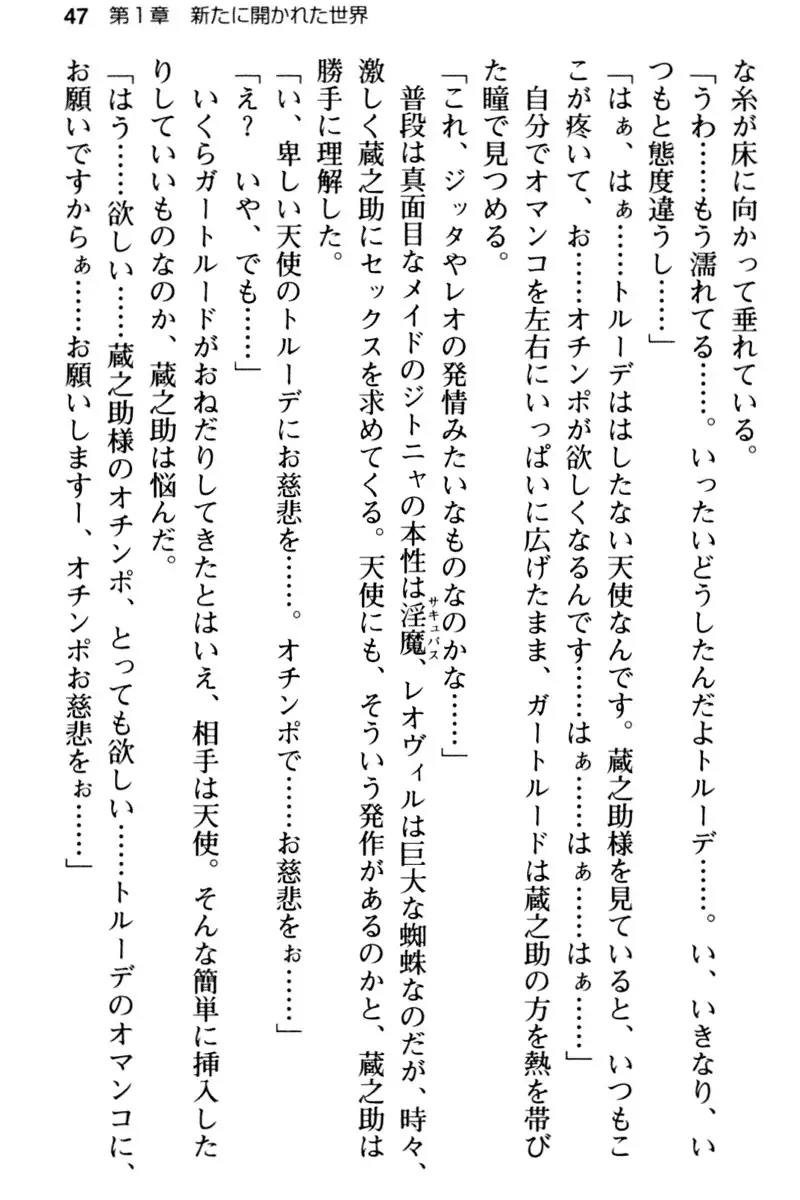 47 第1章 新たに開かれた世界
な糸が床に向かって垂れている。
「うわ……もう濡れてる……。いったいどうしたんだよトルーデ……。い、いきなり、い
つもと態度違うし……」
「はぁ、はぁ……トルーデははしたない天使なんです。蔵之助様を見ていると、いつもこ
こが疼いて、お……オチンポが欲しくなるんです……はぁ……はぁ……はぁ……」
自分でオマンコを左右にいっぱいに広げたまま、ガートルードは蔵之助の方を熱を帯び
た瞳で見つめる。
「これ、ジッタやレオの発情みたいなものなのかな……」
普段は真面目なメイドのジトニャの本性は淫魔サキュバス、レオヴィルは巨大な蜘蛛なのだが、時々、
激しく蔵之助にセックスを求めてくる。天使にも、そういう発作があるのかと、蔵之助は
勝手に理解した。
「い、卑しい天使のトルーデにお慈悲を……。オチンポで……お慈悲をぉ……」
「え? いや、でも……」
いくらガートルードがおねだりしてきたとはいえ、相手は天使。そんな簡単に挿入した
りしていいものなのか、蔵之助は悩んだ。
「はう……欲しい……蔵之助様のオチンポ、とっても欲しい……トルーデのオマンコに、
お願いですからぁ……お願いしますー、オチンポお慈悲をぉ……」